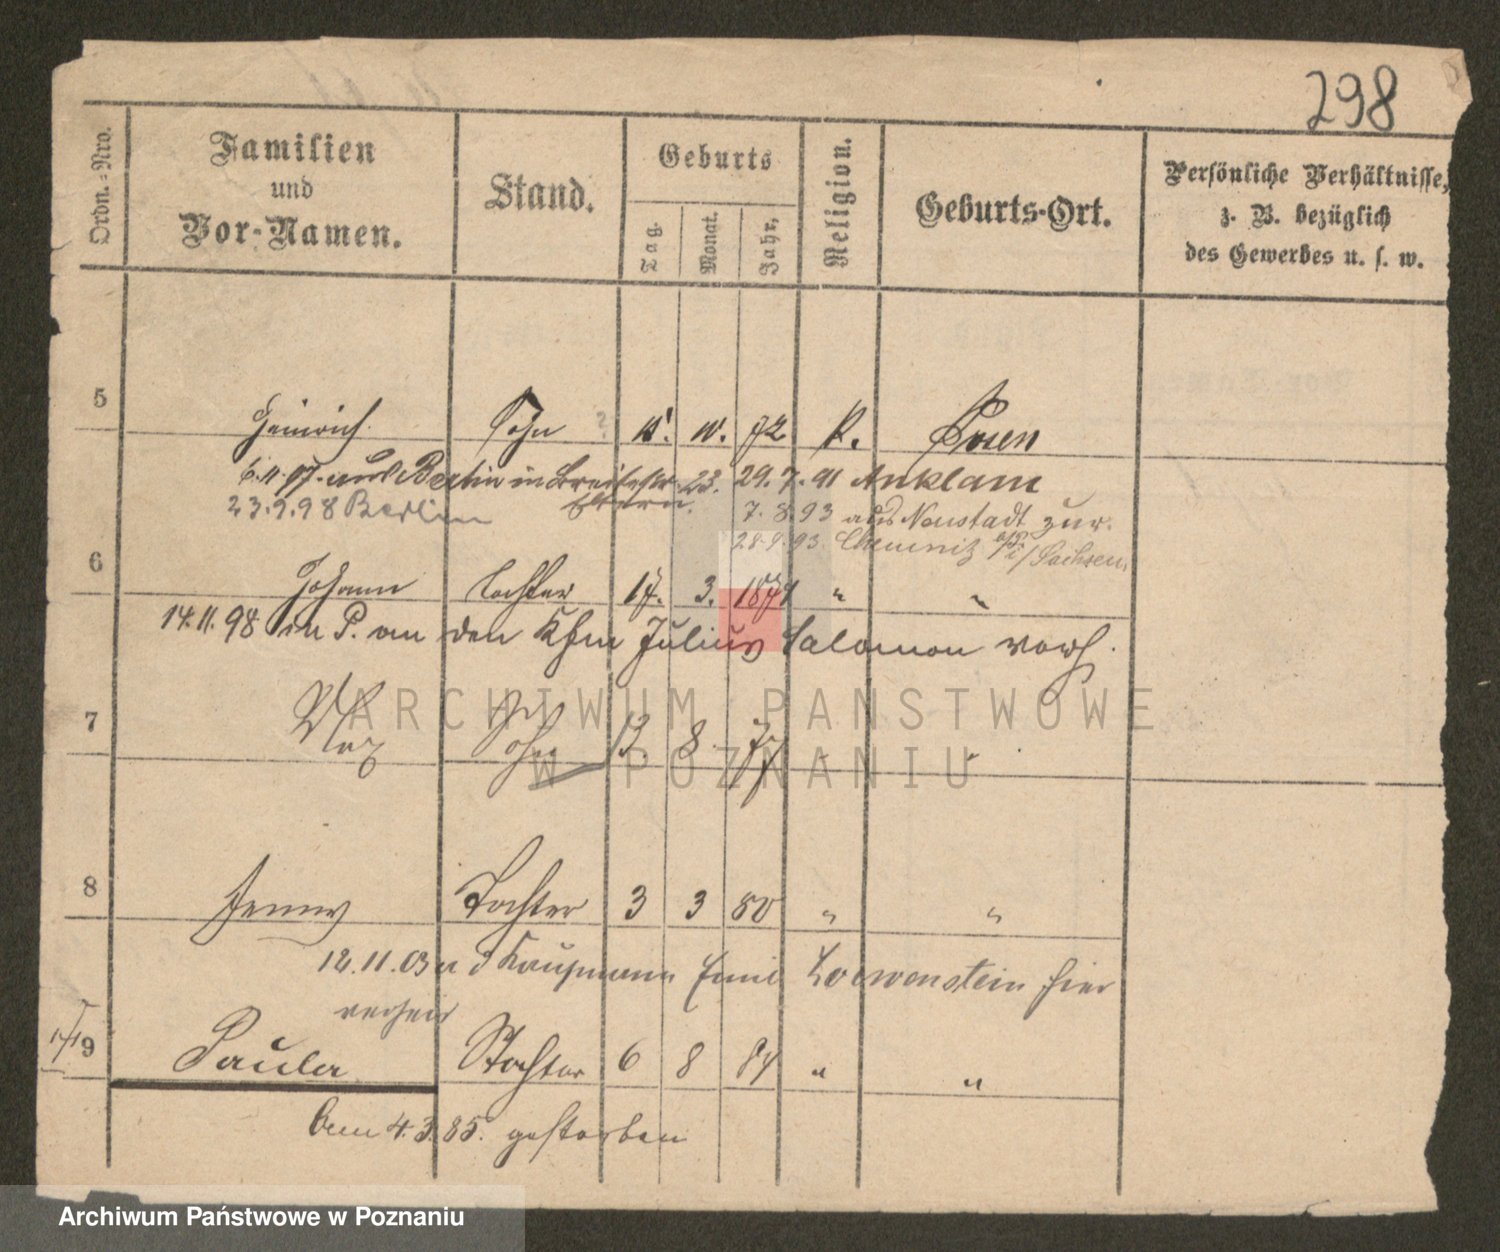 298
Ordn.-Nro.
Familien
und
Vor-Namen.
Stand.
Geburts
Tag.
Monat.
Jahr.
Religion.
Geburts-Ort.
Persönliche Verhältnisse,
z. B. bezüglich
des Gewerbes u. s. w.
5 Heinrich Sohn 10. 72 Posen
6.11.97. aus Berlin in Breitestr. 23. 29.7.91 Anklam
Eltern.
23.9.98 Berlin 7.8.93 aus Neustadt zur.
28.9.93 Chemnitz i/Sachsen
6 Johann Tochter 17. 3. 1874 " "
14.11.98 in P. an den Kfm Julius Salomon verh.
7 Max Sohn 13. 8. 77 "
8 Jenny Tochter 3 3 80 " "
12.11.03 a d Kaufmann Emil Loewenstein hier
verheir
9 Paula Tochter 6 8 84 " "
Am 4.3.85. gestorben
ARCHIWUM PAŃSTWOWE
W POZNANIU
Archiwum Państwowe w Poznaniu